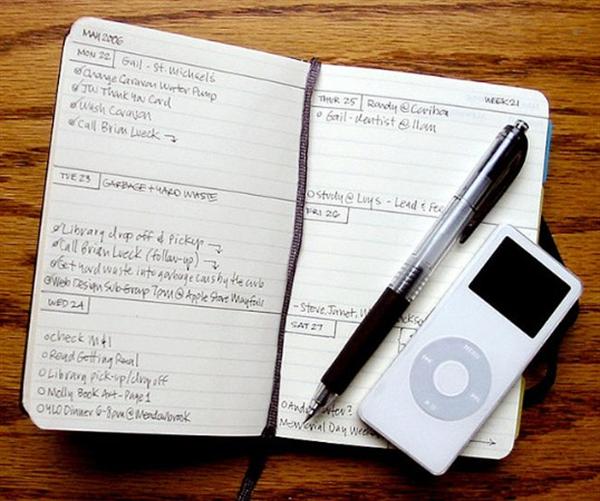 MAY 2006
MON 22 Gail - St. Michaels
Change Caravan Water Pump
JW Thank You Card
Wash Caravan
Call Brian Lueck →
TUE 23 GARBAGE + YARD WASTE
Library drop off & pickup →
Call Brian Lueck (follow-up) →
Get yard waste into garbage cans by the curb
Web Design Sub-Group 7pm @ Apple Store Mayfair
WED 24
check M&I
Read Getting Real
Library pick-up/dropoff
Molly Book Art - Page 1
YLO Dinner 6-8pm @ Meadowbrook
THUR 25 Randy @ Caribou WEEK 21
Gail - dentist @ 11am
Study @ Luy's - Lead &
FRI 26
- Steve, Janet,
SAT 27
Memorial Day
MENU